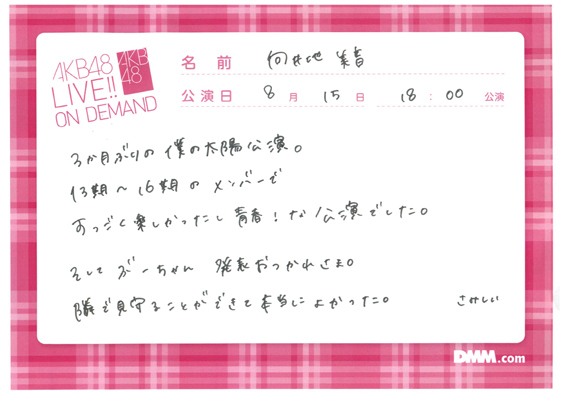 AKB48
LIVE!!
ON DEMAND
AKB
48
名前 向井地 美音
公演日 8月 15日 18:00 公演
3か月ぶりの 僕の太陽公演。
13期〜16期の メンバーで
すっごく楽しかったし 青春!な 公演でした。
そして ぶーちゃん 発表おつかれさま。
隣で見守ることができて本当によかった。 さみしい
DMM.com